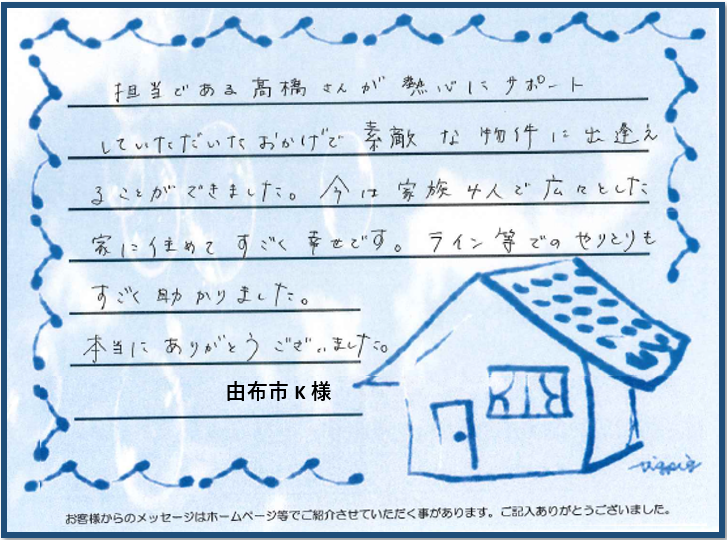 担当である高橋さんが熱心にサポート
していただいたおかげで素敵な物件に出逢え
ることができました。今は家族4人で広々とした
家に住めてすごく幸せです。ライン等でのやりとりも
すごく助かりました。
本当にありがとうございました。
由布市 K 様
お客様からのメッセージはホームページ等でご紹介させていただく事があります。ご記入ありがとうございました。